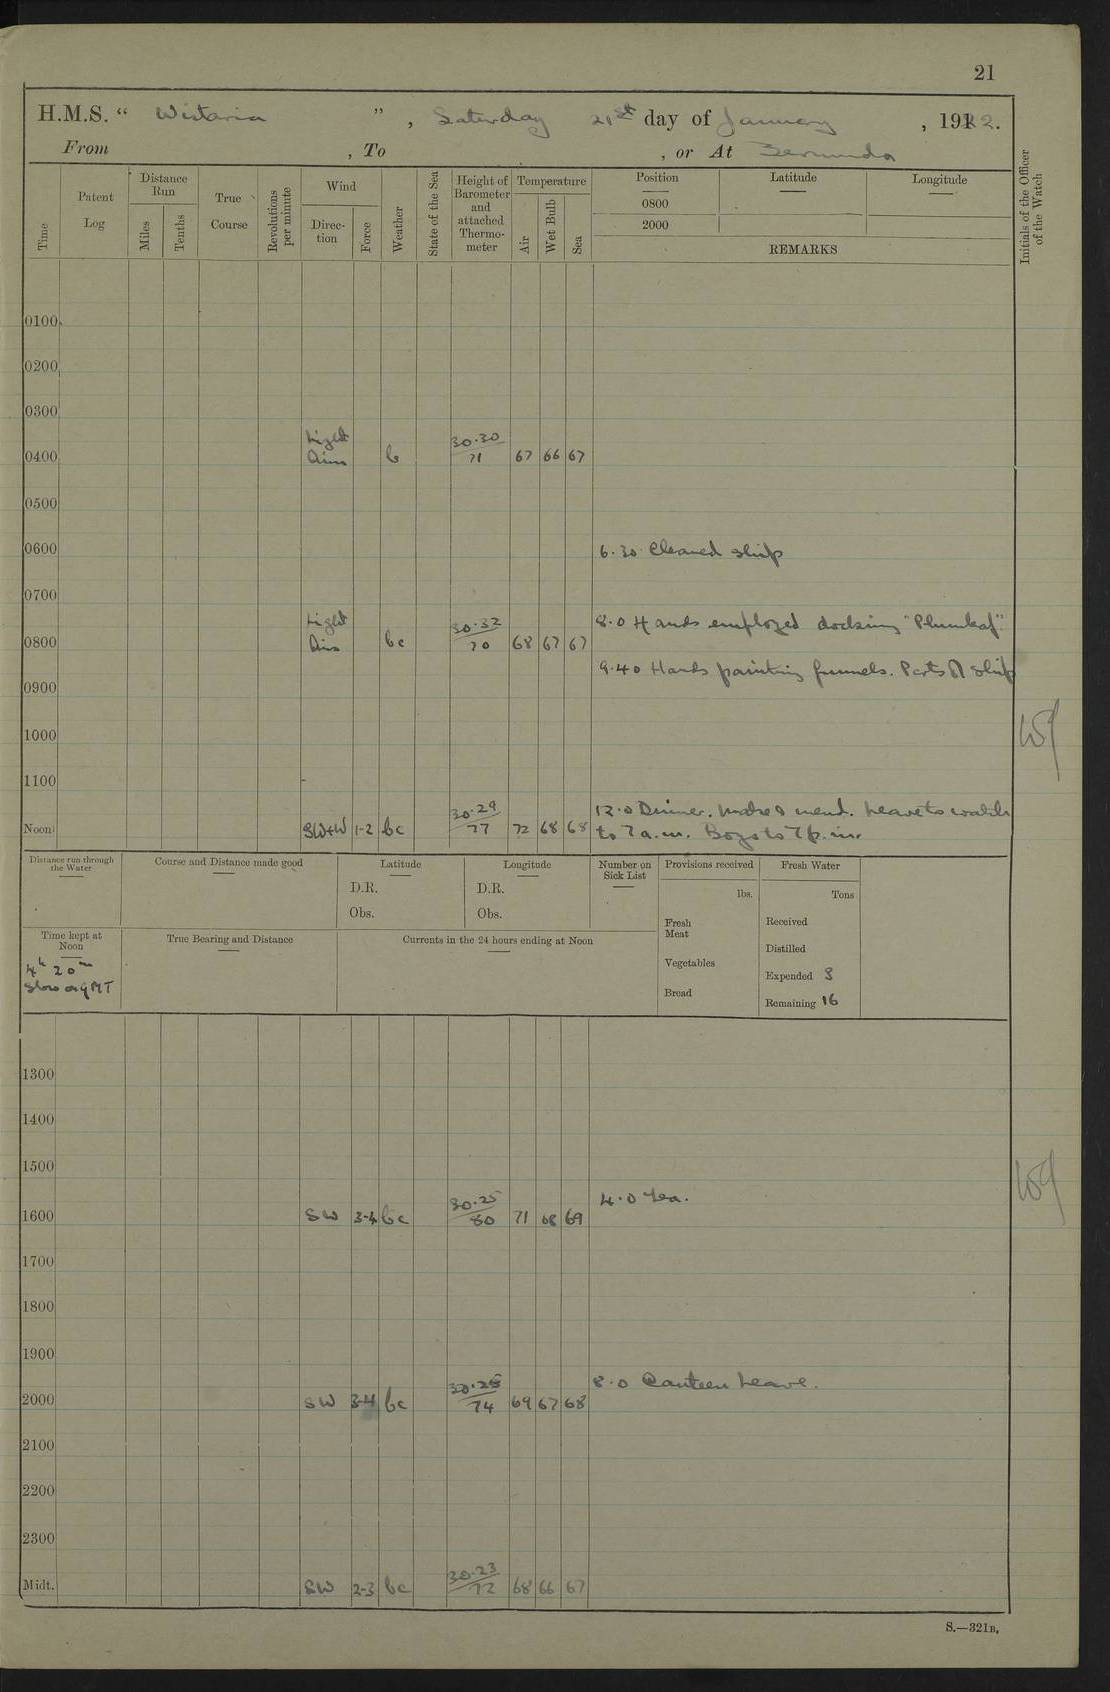 21
H.M.S. “ Wistaria ” , Saturday 21st day of January , 1922.
From , To , or At Bermuda
Time
Patent Log
Distance Run
Miles
Tenths
True Course
Revolutions per minute
Wind
Direction
Force
Weather
State of the Sea
Height of Barometer and attached Thermometer
Temperature
Air
Wet Bulb
Sea
Position
0800
2000
Latitude
Longitude
REMARKS
Initials of the Officer of the Watch
0100
0200
0300
Light 30.30
0400 Airs b 71 67 66 67
0500
0600 6.30 Cleaned ship
0700
Light 30.32 8.0 Hands employed docking "Plumleaf".
0800 Airs bc 70 68 67 67
9.40 Hands painting funnels. Parts of ship
0900
1000
1100
30.29 12.0 Dinner. Make & mend. Leave to watch
Noon SW+W 1-2 bc 77 72 68 68 to 7 a.m. Boys to 7 p.m.
Distance run through the Water
Course and Distance made good
Latitude
D.R.
Obs.
Longitude
D.R.
Obs.
Number on Sick List
Provisions received
lbs.
Fresh Meat
Vegetables
Bread
Fresh Water
Tons
Received
Distilled
Expended 3
Remaining 16
Time kept at Noon
4h 20m
Slow on GMT
True Bearing and Distance
Currents in the 24 hours ending at Noon
1300
1400
1500
30.25 4.0 Tea.
1600 SW 3-4 bc 80 71 68 69
1700
1800
1900
30.25 8.0 Canteen Leave.
2000 SW 3-4 bc 74 69 67 68
2100
2200
2300
30.23
Midt. SW 2-3 bc 72 68 66 67
S.—321B.